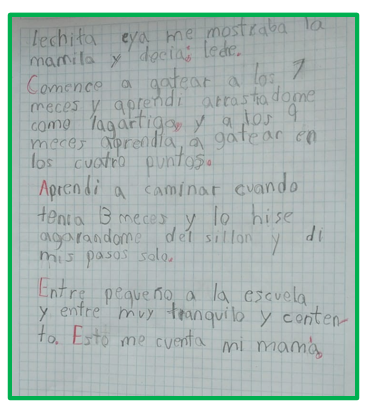 lechita eya me mostraba la
mamila y decia: leche.
Comence a gatear a los 7
meces y aprendi arrastadome
como lagartiga, y a los 9
meces aprendia, a gatear en
los cuatro puntos.
Aprendi a caminar cuando
tenia 13 meces y lo hise
agarandome del sillon y di
mis pasos solo.
Entre pequeño a la escuela
y entre muy tranquilo y conten-
to. Esto me cuenta mi mamá.